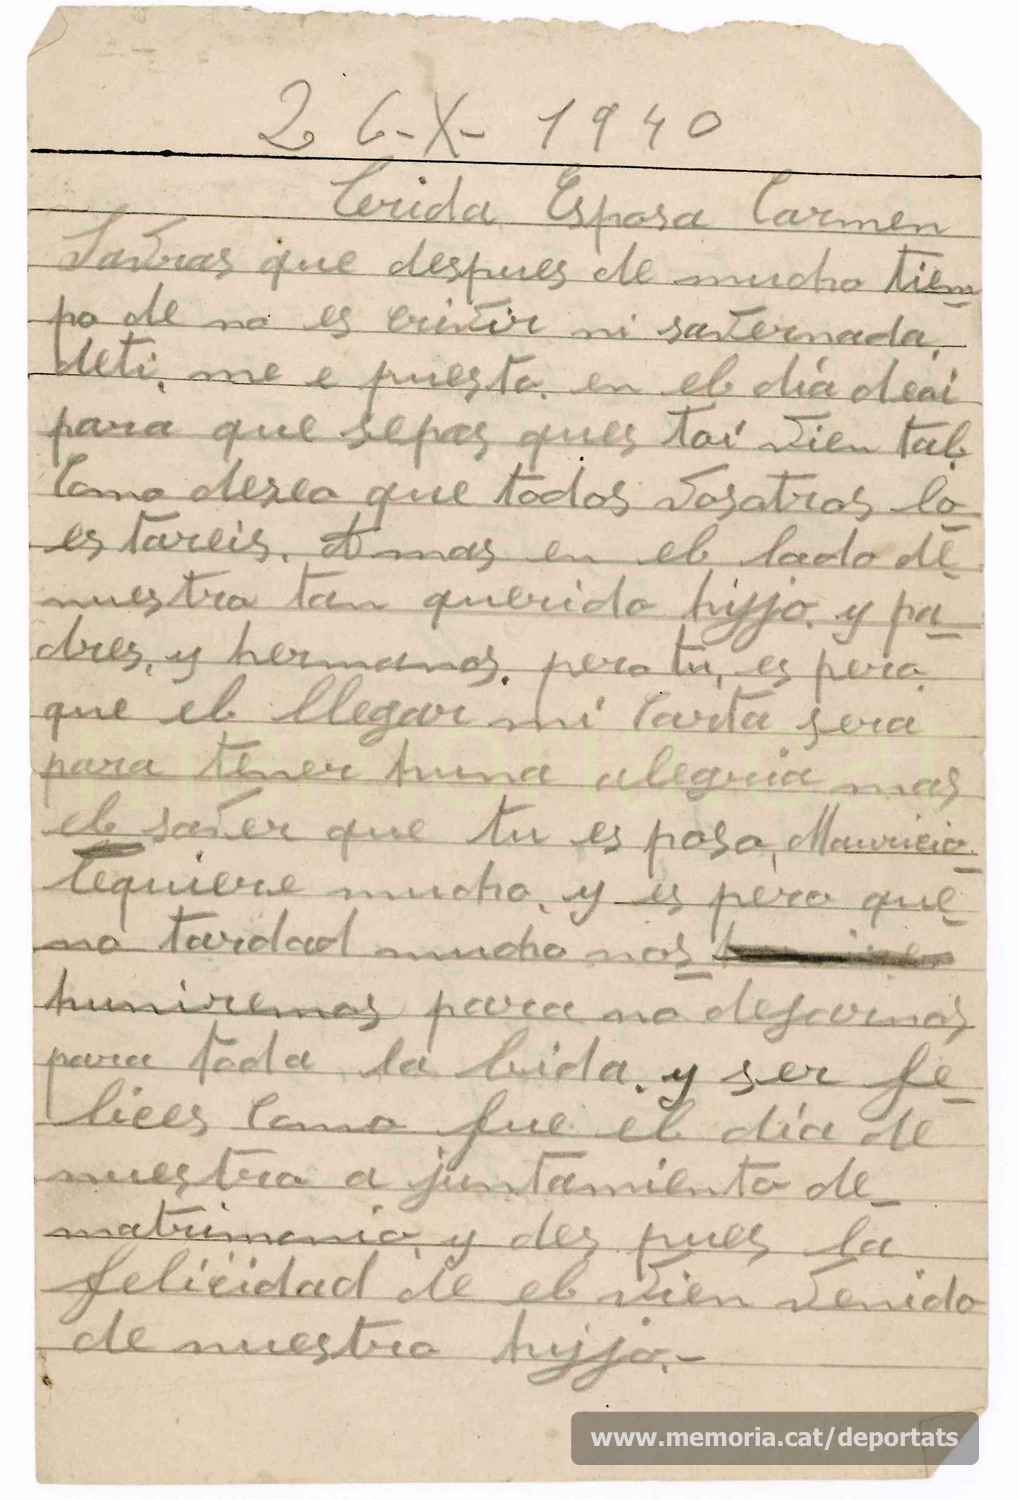 26-X-1940
Cerida Esposa Carmen
Savras que despues de mucho tiem_
po de no es crivir ni savernada,
deti, me e puesto, en el día deai
para que sepas ques toí vien tal,
Como deseo que todos vosotros lo_
es tareis. A mas en el lado de_
nuestro tan querido hijjo, y pa_
dres, y hermanos, pero tu, es pero,
que el llegar mi Carta sera
para tener huna alegria mas
el saver que tu es poso, Mauricio_
Tequiere mucho, y es pero que_
no tardad mucho nos_
huniremos para no dejarnos,
para toda la bida, y ser fe_
lices Como fue el día de
nuestro a juntamiento de_
matrimonio, y des pues la
felicidad de el vien venido
de nuestro hijjo.-
www.memoria.cat/deportats